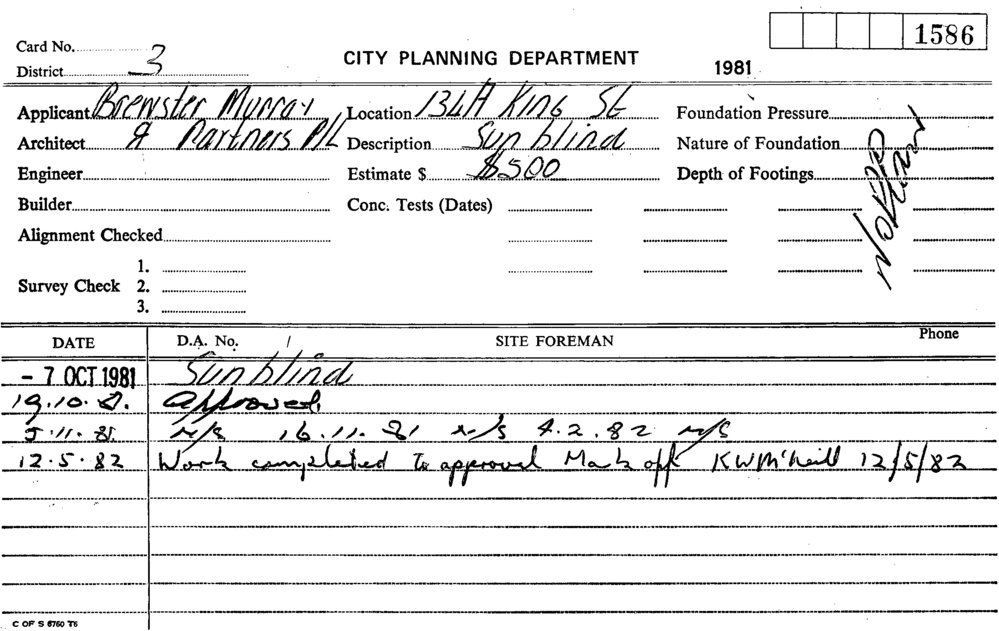 1586
Card No. 3
CITY PLANNING DEPARTMENT
District
1981
Applicant Brewster Murray Location 134A King St Foundation Pressure
Architect & Partners P/L Description Sunblind Nature of Foundation
Engineer Estimate $ $500 Depth of Footings
Builder Conc. Tests (Dates)
Alignment Checked
1.
Survey Check 2.
3.
DATE D.A. No. / SITE FOREMAN Phone
- 7 OCT 1981 Sunblind
19.10.81. Approved.
5.11.81. N/S 16.11.81 N/S 4.2.82 N/S
12.5.82 Work completed to approval Mark off KWMcNeill 12/5/82
C OF S 6760 T6